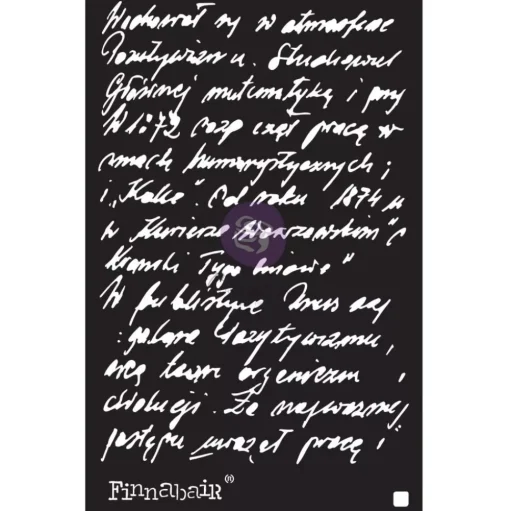 Wychował się w atmosferze
Pozytywizmu. Studiował
Głównej matematykę i przy
W 1872 rozpoczął pracę w
pismach humorystycznych;
i „Kolce". Od roku 1874 u
w Kurierze Warszawskim" (
Kroniki Tygodniowe"
W publistyce Prus
: galarze Pozytywizmu,
organizm
ewolucji. Za najważniej
postępu uważał pracę i
FinnabaiR®